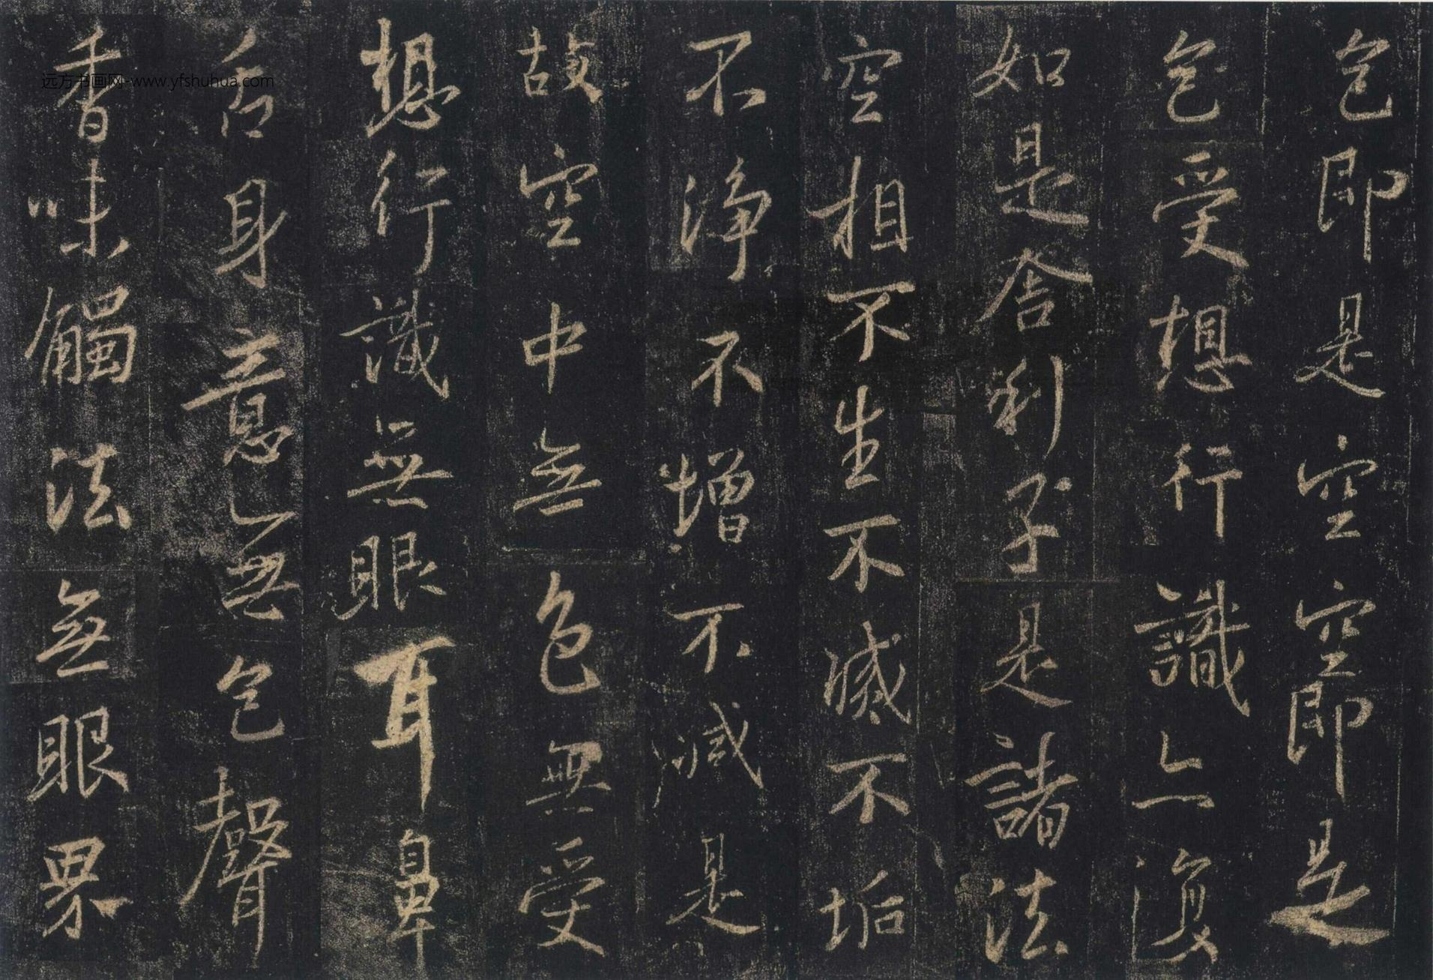 色即是空空即是
色受想行識亦復
如是舍利子是諸法
空相不生不滅不垢
不淨不增不減是
故空中無色無受
想行識無眼耳鼻
舌身意無色聲
香味觸法無眼界
远方书画网-www.yfshuhua.com